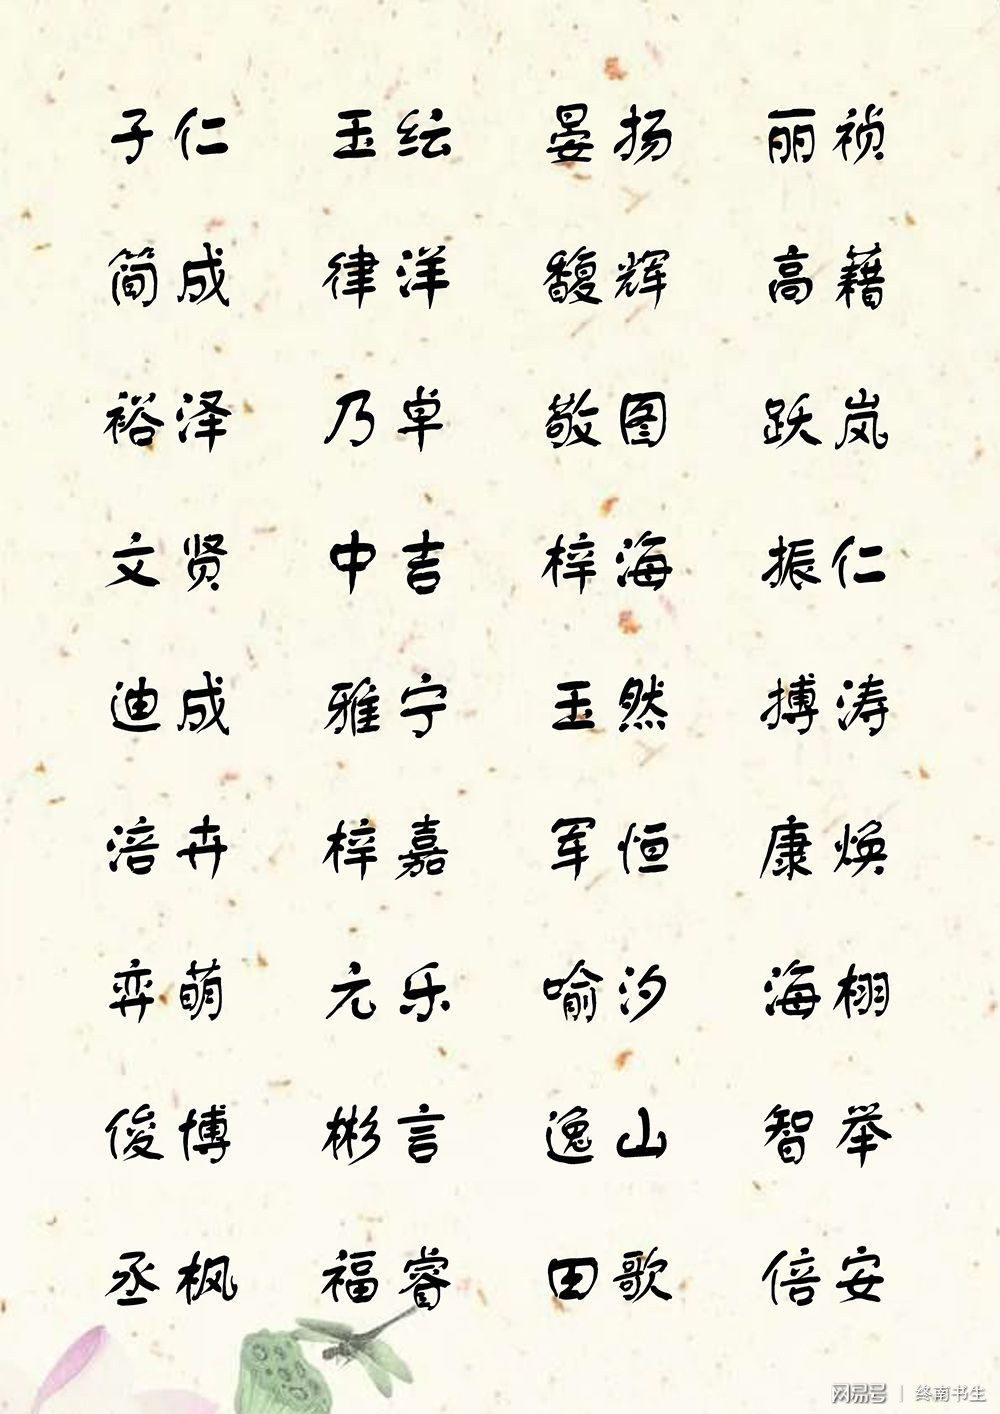 子仁 玉纭 晏扬 丽祯
简成 律洋 馥辉 高藉
裕泽 乃卓 敬图 跃岚
文贤 中吉 梓海 振仁
迪成 雅宁 玉然 搏涛
涪卉 梓嘉 军恒 康焕
弈萌 元乐 喻汐 海栩
俊博 彬言 逸山 智举
丞枫 福睿 田歌 倍安
网易号 | 终南书生